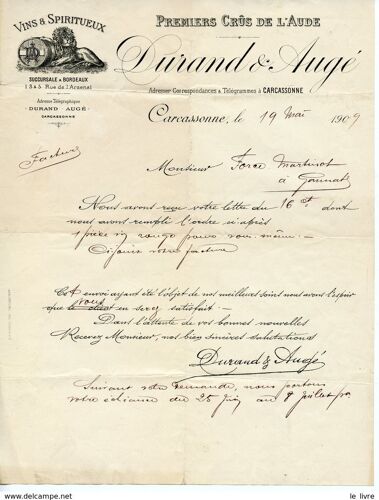 VINS & SPIRITUEUX
SUCCURSALE à BORDEAUX
1 3 & 5 Rue de l'Arsenal
Adresse Télégraphique
DURAND-AUGÉ
CARCASSONNE
PREMIERS CRÛS DE L'AUDE
Durand & Augé
Adresser Correspondances & Télégrammes à CARCASSONNE
Carcassonne, le 19 Mai 1909
Facture
Monsieur
à Gannat
Nous avons reçu votre lettre du 16 ct dont
nous avons rempli l'ordre ci après
1 pièce vin rouge pour vous même
Ci joint votre facture
Cet envoi ayant été l'objet de nos meilleurs soins nous avons l'espoir
que vous en serez satisfait
Dans l'attente de vos bonnes nouvelles
Recevez Monsieur, nos bien sincères salutations
Durand & Augé
Suivant votre demande, nous portons
votre échéance du 25 Juin au 8 Juillet
www.delcampe.net
le livre